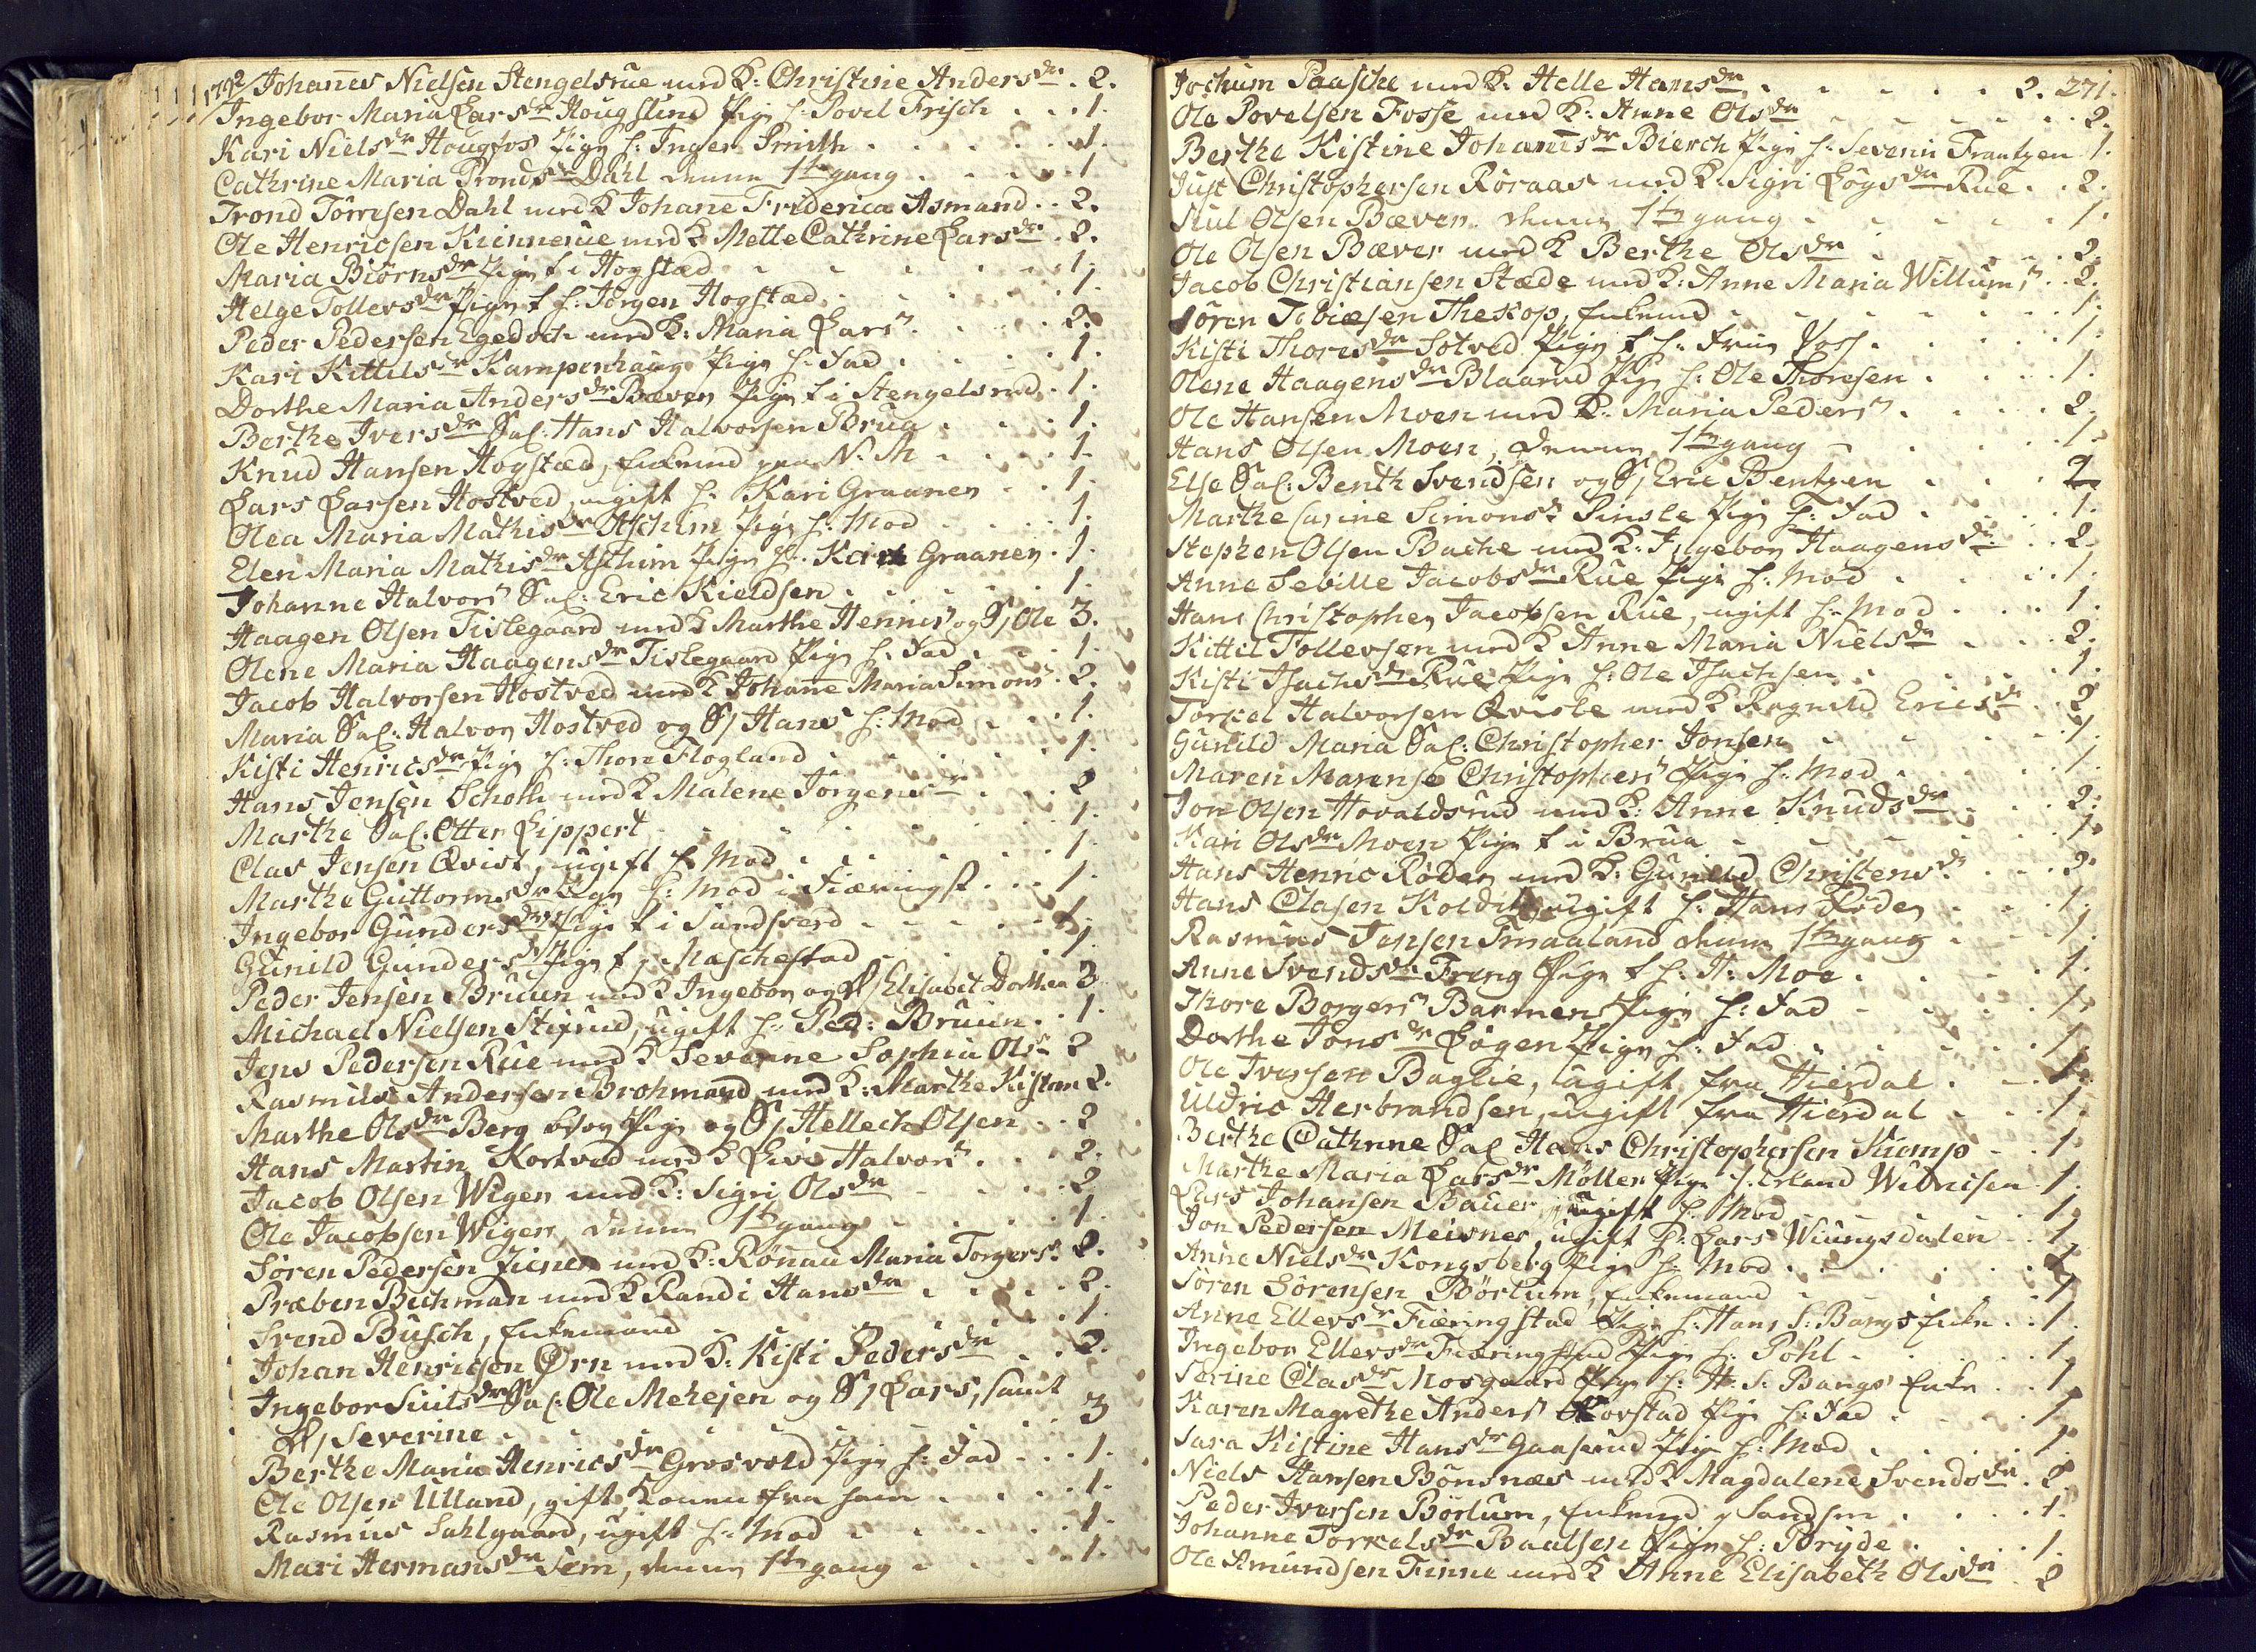 1792/ Johanes Nielsen Stengelsrue med K: Christine Andersdr. 2.
Ingebor Maria Larsdr Hougslund Pige h: Povel Frisch . . 1.
Kari Nielsdr Hougfos Pige h: Inger Smith . . . 1.
Cathrine Maria Trondsdr Dahl denne 1te gang . . . 1
Trond Törresen Dahl med K Johane Friderica Asmand . . 2.
Ole Henricsen Kinnerue med K Mette Cathrine Larsdr . 2.
Maria Biörnsdr Pige t i Hogstad . . . 1.
Helge Tollevsdr Pige t h: Jörgen Hogstad . . . 1.
Peder Pedersen Egedoch med K: Maria Larsr . . . 2.
Kari Kittilsdr Kampenhaug Pige h: Fad . . . 1.
Dorthe Maria Andersdr Bæver Pige t i Stengelsrud . 1.
Berthe Iversdr Sal: Hans Halvorsen Brua . . . 1.
Knud Hansen Hogstad, Enkemd paa N: M . . . 1.
Lars Larsen Hostved, ugift h: Kari Graanen . . 1.
Olea Maria Mathisdr Aschim Pige h: Mod . . . 1.
Elen Maria Mathisdr Aschim Pige h: Kari Graanen . 1.
Johanne Halvorsr Sal: Eric Kieldsen . . . 1.
Haagen Olsen Tislegaard med K Marthe Henricsr og S/ Ole 3.
Olene Maria Haagensdr Tislegaard Pige h: Fad . . . 1.
Jacob Halvorsen Hostved med K Johane Maria Simonsr . 2.
Maria Sal: Halvor Hostved og S/ Hans h: Mod . . . 1.
Kisti Henricsdr Pige h: Thore Flogland . . . 1.
Hans Jensen Schoth med K Malene Jörgensdr . . . 2
Marthe Sal: Otter Lippert . . . 1.
Clas Jensen Qvist, ugift h: Mod . . . 1.
Marthe Guttormsdr Pige h: Mod i Fiæringst . . . 1.
Ingebor Gundersdr Pige t i Sandsverd . . . 1.
Gunild Gundersdr Pige t p Maschestad . . . 1.
Peder Jensen Bruun med K Ingebor og D/ Elisabet Dorthea 3
Michael Nielsen Stifrud, ugift h: Ped: Bruun . . 1.
Jens Pedersen Rue med K Severine Sophia Olsdr 2
Rasmus Andersen Brohmand med K: Marthe Kistine 2.
Marthe Olsdr Berg Pige og S/ Hellech Olsen . . 2
Hans Martin Kortved med K Live Halvorsr . . . 2.
Jacob Olsen Wiger med K: Sigri Olsdr . . . 2
Ole Jacobsen Wiger, denne 1te gang . . . 1.
Sören Pedersen med K: Rönau Maria Torgersr 2.
Præben Bechman med K Randi Hansdr . . . 2.
Svend Busch, Enkemand . . . 1.
Johan Henricsen Örn med K: Kisti Pedersdr . . 2.
Ingebor Siulsdr Sal: Ole Mehejen og S/ Lars, samt
D/ Severine . . . 3
Berthe Maria Henricsdr Grosvold Pige h: Fad . . . 1.
Ole Olsen Ulland, gift, Konen fra ham . . . 1.
Rasmus Sahlgaard, ugift h: Mod . . . 1.
Mari Hermansdr Sem, denne 1te gang . . . 1.
Jochum Paasche med K: Helle Hansdr . . . 2. 271.
Ole Povelsen Fosse med K: Anne Olsdr . . . 2.
Berthe Kistine Johansdr Bierch Pige h: Severin Frantzen 1.
Just Christophersen Röraas med K: Sigri Lögsdr Rue . . 2.
Siul Olsen Bæver denne 1te gang . . . 1.
Ole Olsen Bæver med K Berthe Olsdr . . . 2.
Jacob Christiansen Stæde med K: Anne Maria Willumsr . . 2.
Sören Tobiæsen Theskop, Enkemd . . . 1.
Kisti Thoresdr Sotved Pige t h: Frue Voss . . . 1.
Olene Haagensdr Blaarud Pige h: Ole Thoresen . . . 1.
Ole Hansen Moen med K: Maria Pedersr . . . 2.
Hans Olsen Moen, denne 1te gang . . . 1.
Else Sal: Benth Svendsen og S/ Eric Bentzen . . . 2
Marthe Carine Simonsr Pinsle Pige h: Fad . . . 1.
Stephen Olsen Bache med K: Ingebor Haagensdr . . 2.
Anne Seville Jacobsdr Rue Pige h: Mod . . . 1.
Hans Christopher Jacobsen Rue, ugift h: Mod . . . 1.
Kittil Tollevsen med K Anne Maria Nielsdr . . . 2.
Kisti Isachsdr Rue Pige h: Ole Isachsen . . . 1.
Torkel Halvorsen Qvisle med K Ragnild Ericsdr . . 2
Gunild Maria Sal: Christopher Jonsen . . . 1.
Maren Marense Christophersr Pige h: Mod . . . 1.
Jon Olsen Hovaldsrud med K: Anne Knudsdr . . . 2.
Kari Olsdr Moen Pige t i Brua . . . 1.
Hans Henric Röder med K: Gunild Christensdr . . . 2.
Hans Clasen Koldit, ugift h: Hans Röder . . . 1.
Rasmus Jensen Smaaland denne 1te gang . . . 1.
Anne Svendsdr Freng Pige t h: H: Moe . . . 1.
Thore Borgersr Barmen Pige h: Fad . . . 1.
Dorthe Jonsdr Lögen Pige h: Fad . . . 1.
Ole Iversen Baglie, ugift, fra Hierdal . . . 1.
Uldric Herbrandsen, ugift fra Hierdal . . . 1.
Berthe Cathrine Sal Hans Christophersen Kiemp . . 1.
Marthe Maria Larsdr Möller Pige h: Erland . 1.
Lars Johansen Bauer, ugift h: Mod . . . 1.
Jon Pedersen Meisner, ugift h: Lars Wiungsdalen . . 1.
Anne Nielsdr Kongsberg Pige h: Mod . . . 1.
Sören Sörensen Börtum, Enkemand . . . 1
Anne Ellevsdr Fiæringstad Pige h: Hans S: Bangs Enke . . 1.
Ingebor Ellevsdr Fiæringstad Pige h: Pohl . . . 1.
Serine Clasdr Mosgaard Pige h: H: S: Bangs Enke . . 1.
Karen Magrethe Andersr Korstad Pige h: Fad . . . 1.
Sara Kistine Hansdr Gaaserud Pige h: Mod . . . 1.
Niels Hansen Bönsnæs med K Magdalene Svendsdr . 2.
Peder Iversen Börtum, Enkemd p Sandsv . . . 1.
Johanne Torkelsdr Baalsen Pige h: Bryde . . . 1.
Ole Amundsen Finne med K Anne Elisabeth Olsdr . 2